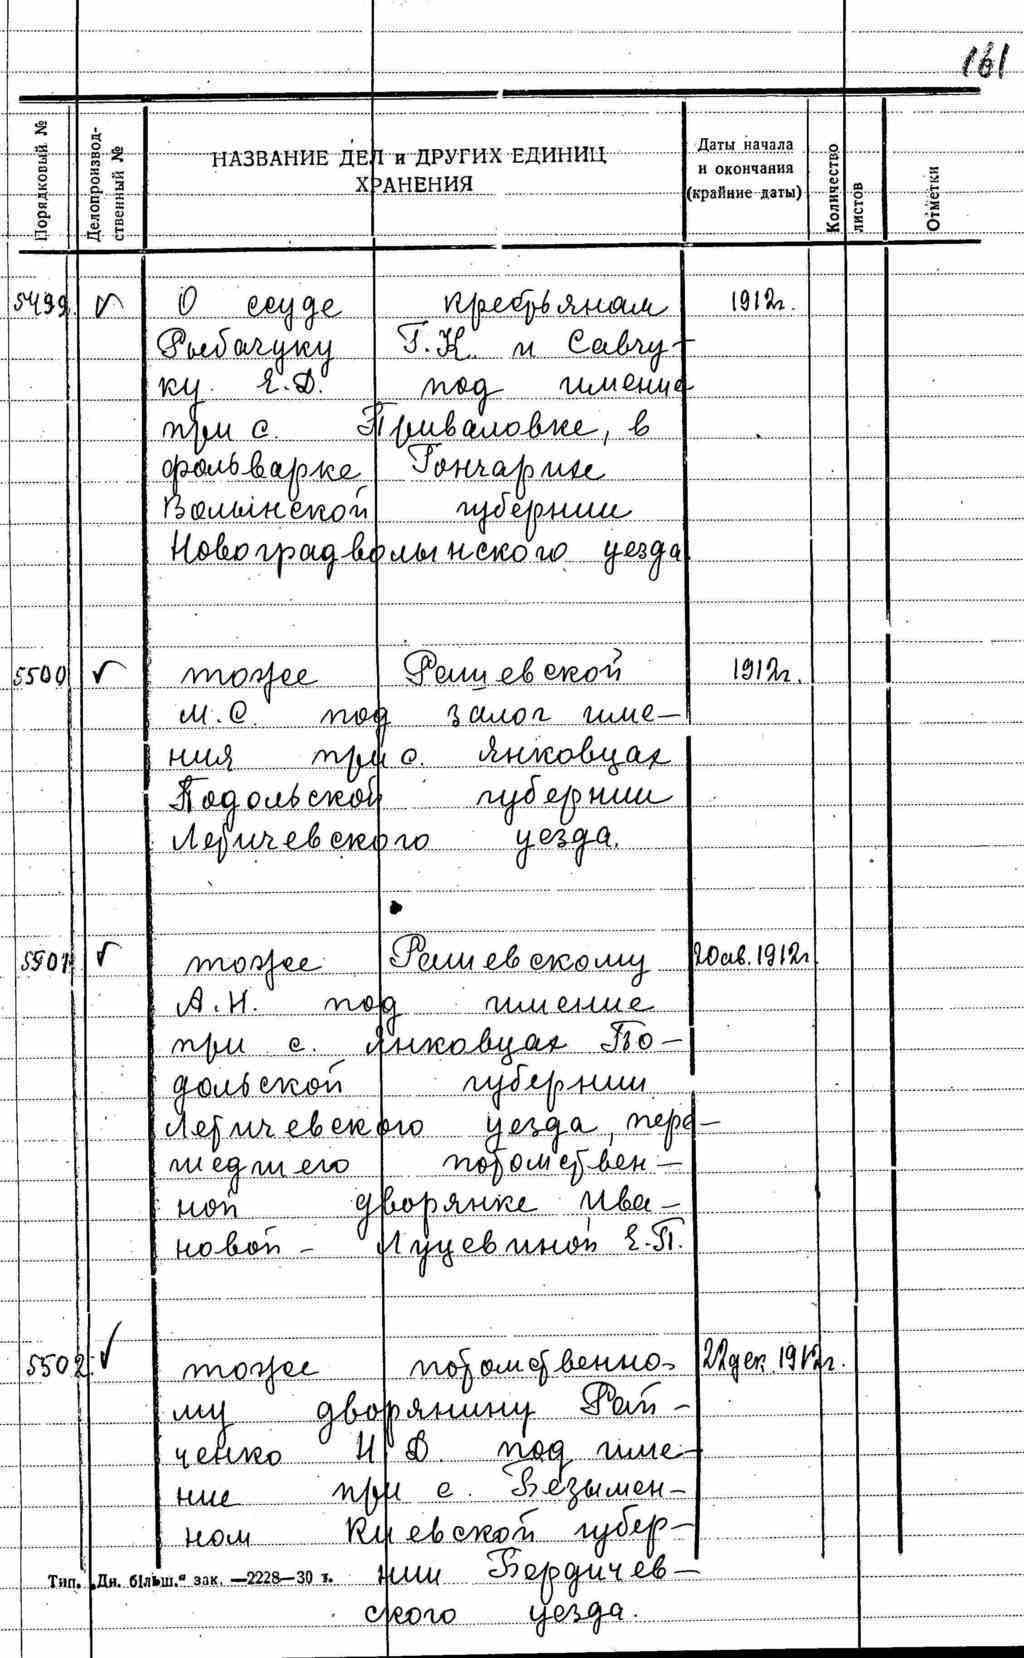 161
Порядковый №
Делопроизвод-
ственный №
НАЗВАНИЕ ДЕЛ и ДРУГИХ ЕДИНИЦ
ХРАНЕНИЯ
Даты начала
и окончания
(крайние даты)
Количество
листов
Отметки
5499 О ссуде крестьянам 1912г.
Рыбачуку Г.К. и Савчу-
ку Е.Д. под имение
при с. Приваловке, в
фольварке Гончарихе
Волынской губернии
Новоградволынского уезда
5500 тоже Рашевской 1912г.
М.С. под залог име-
ния при с. Янковцах
Подольской губернии
Летичевского уезда.
5501 тоже Рашевскому 20 ав. 1912г
А.Н. под имение
при с. Янковцах По-
дольской губернии
Летичевского уезда, пере-
шедшего потомствен-
ной дворянке Ива-
новой - Луцевиной Е.П.
5502. тоже потомственно- 22 дек. 1912г.
му дворянину Рай-
ченко И Д под име-
ние при с. Безымен-
ном Киевской губер-
нии Бердичев-
ского уезда.
Тип. „Дн. більш." зак. —2228—30 т.